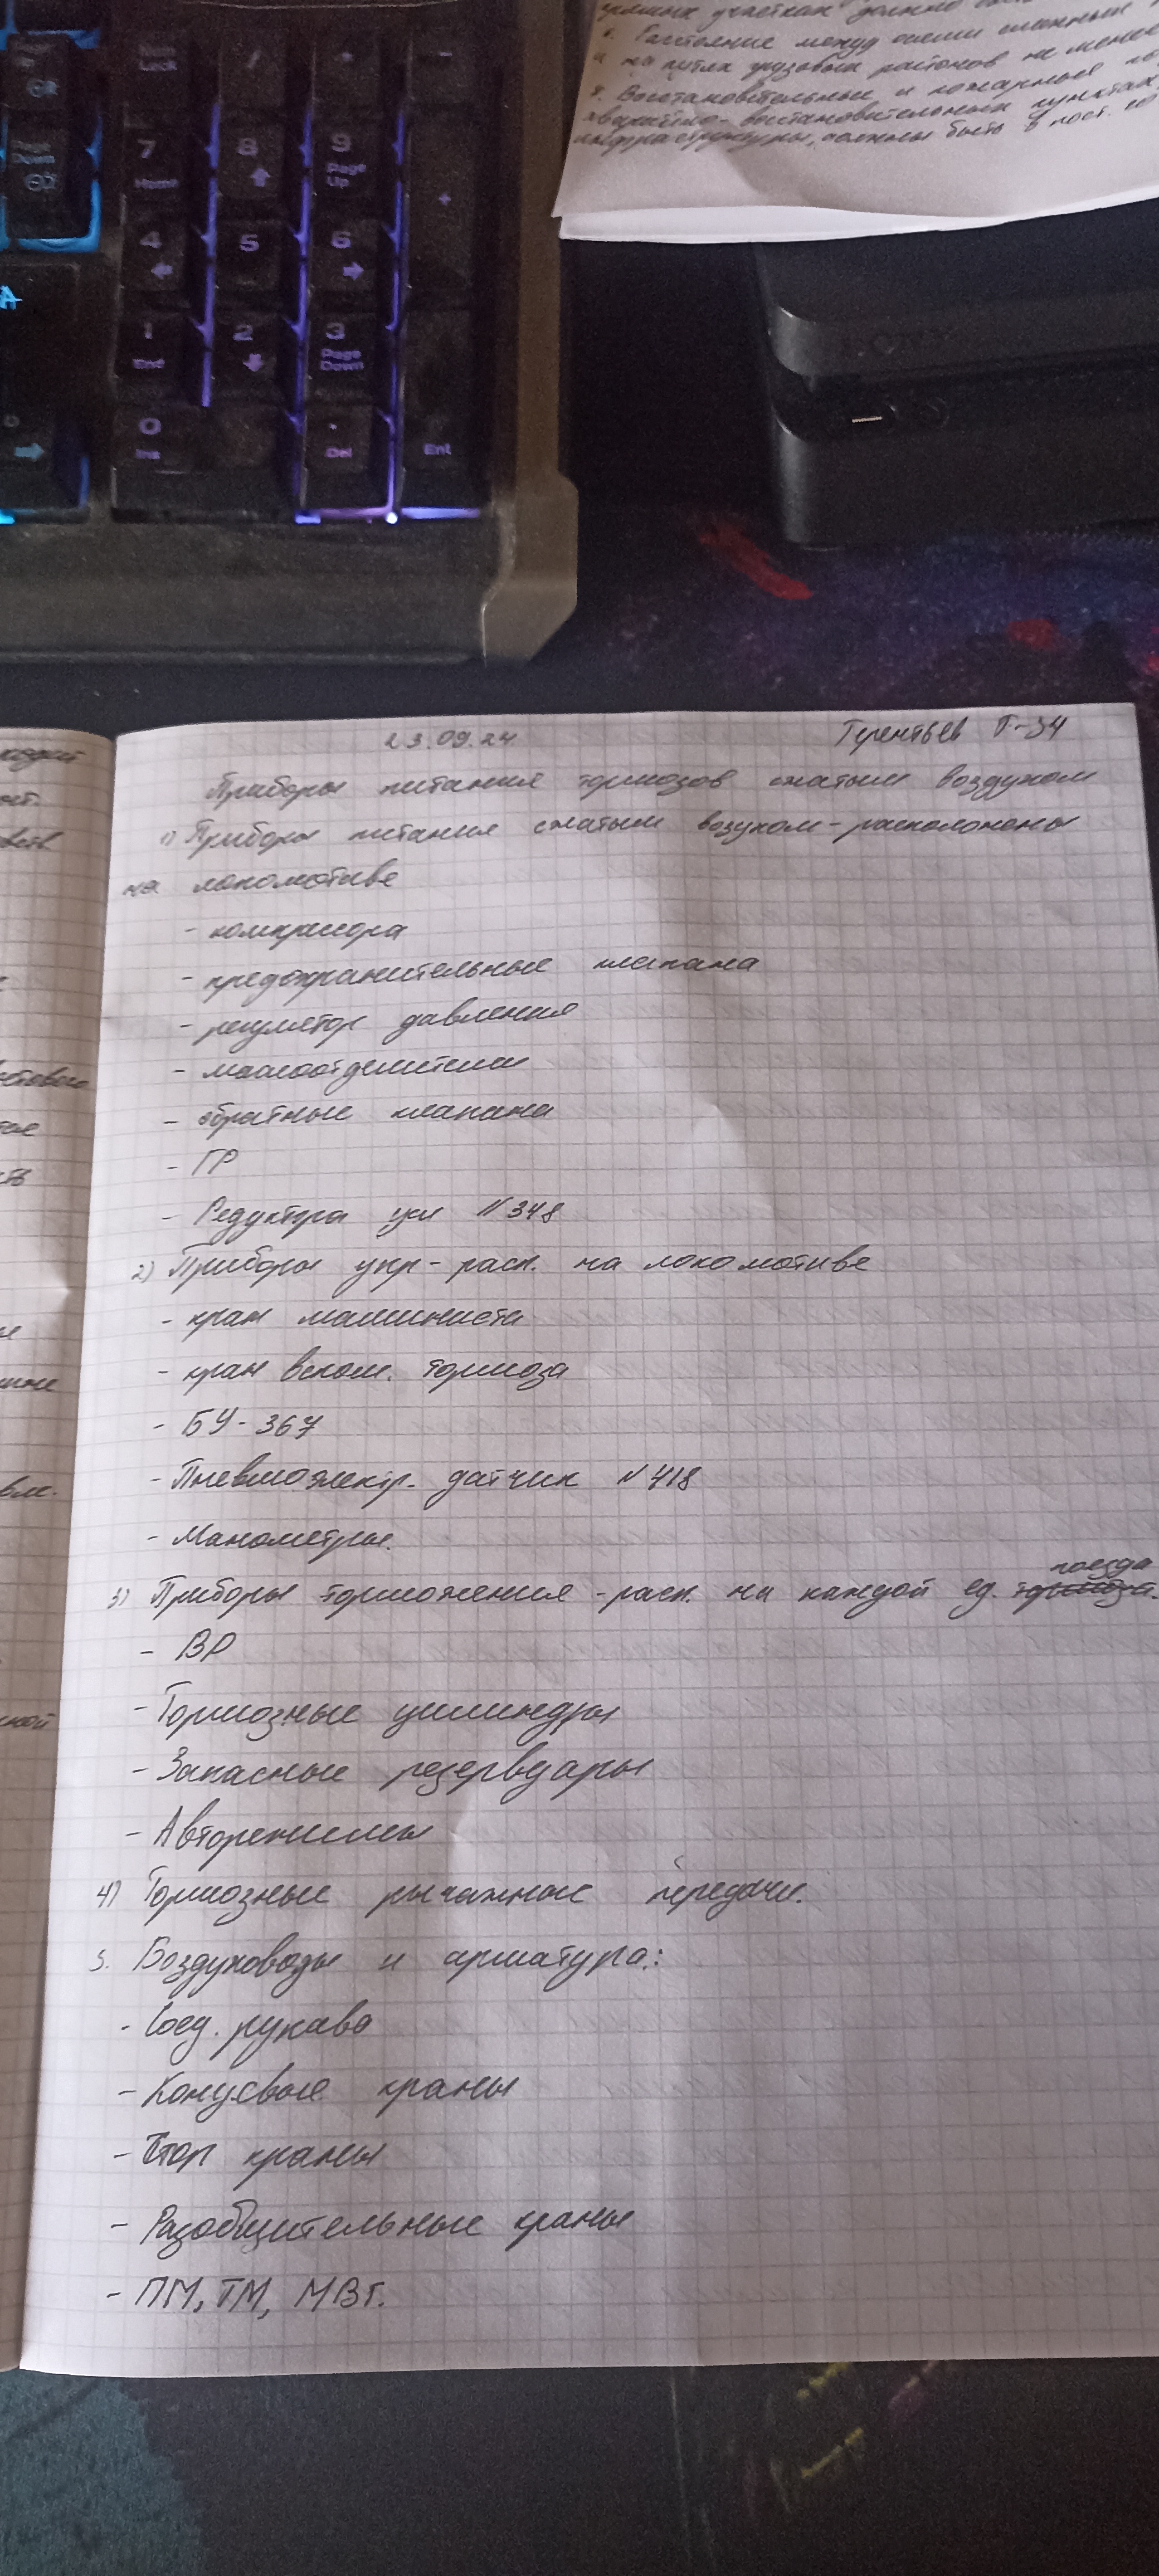 Num
Lock
/
*
-
7
Home
8
9
Page
Up
+
4
5
6
1
End
2
3
Page
Down
0
Ins
.
Del
Ent
Page
Down
SONY
участках должно быть
Расстояние между осями смежных
на путях грузовых районов не менее
Восстановительные и пожарные
восстановительных пунктах
инфраструктуры, должны быть в пост.
23.09.24 Терентьев Т-34
Приборы питания тормозов сжатым воздухом
1) Приборы питания сжатым возухом - расположены
на локомотиве
- компрессора
- предохранительные клапана
- регулятор давления
- маслоотделители
- обратные клапана
- ГР
- Редуктора усл №348
2) Приборы упр - расп. на локомотиве
- кран машиниста
- кран вспом. тормоза
- БУ - 367
- Пневмоэлектр. датчик №418
- Манометры.
поезда
3) Приборы торможения - расп. на каждой ед. тормоза.
- ВР
- Тормозные цилиндры
- Запасные резервуары
- Авторежимы
4) Тормозные рычажные передачи.
5. Воздуховоды и арматура:
- Соед. рукава
- Концевые краны
- Стоп краны
- Разобщительные краны
- ПМ, ТМ, МВТ.